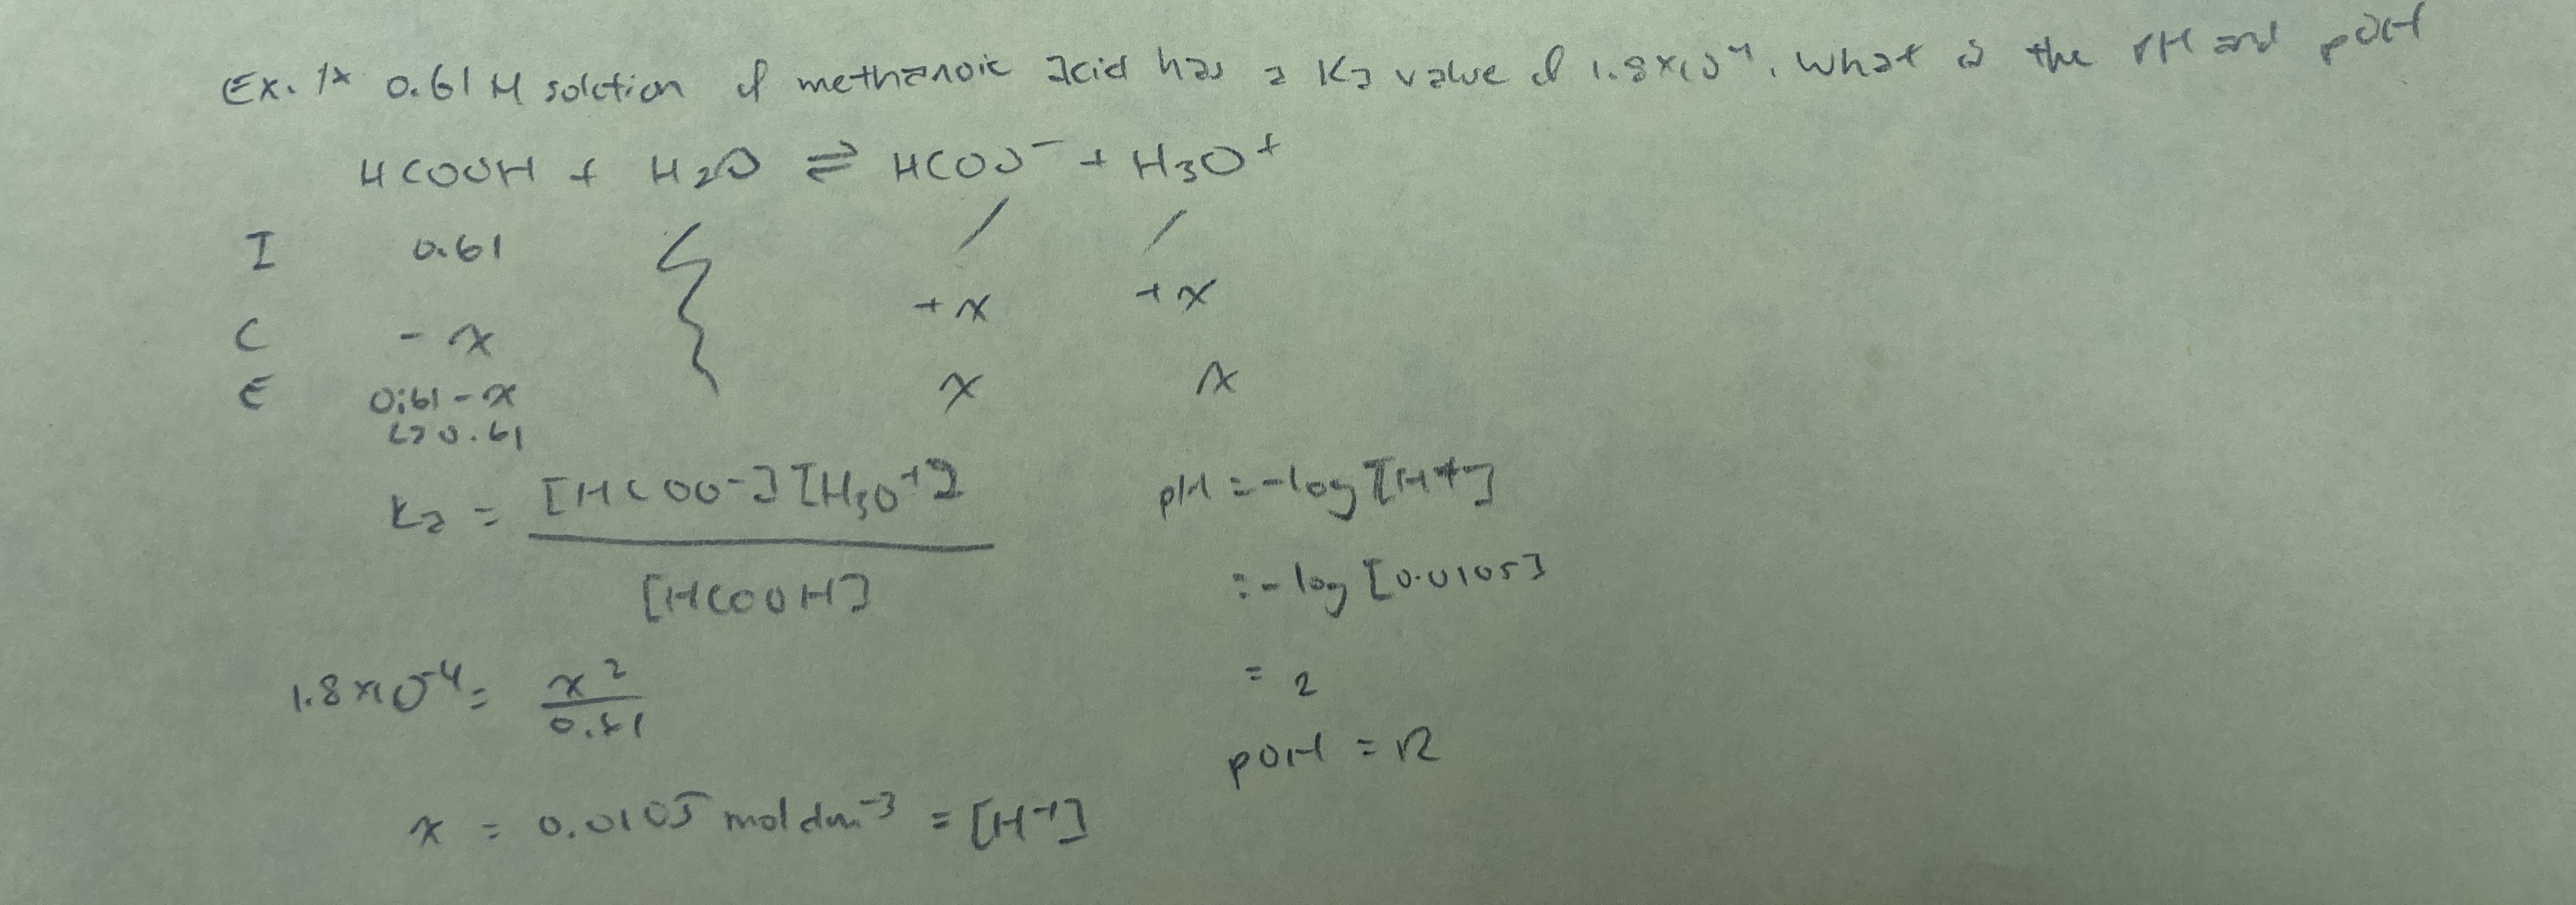 Ex. 1* 0.61 M solution of methanoic acid has a Ka value of 1.8x10⁻⁴. What is the pH and pOH
HCOOH + H2O ⇌ HCOO⁻ + H3O⁺
I 0.61 / /
C - x +x +x
E 0.61 - x x x
↳ 0.61
Ka = [HCOO⁻][H3O⁺] / [HCOOH]
1.8x10⁻⁴ = x² / 0.61
x = 0.0105 mol dm⁻³ = [H⁺]
pH = -log [H⁺]
= -log [0.0105]
= 2
pOH = 12